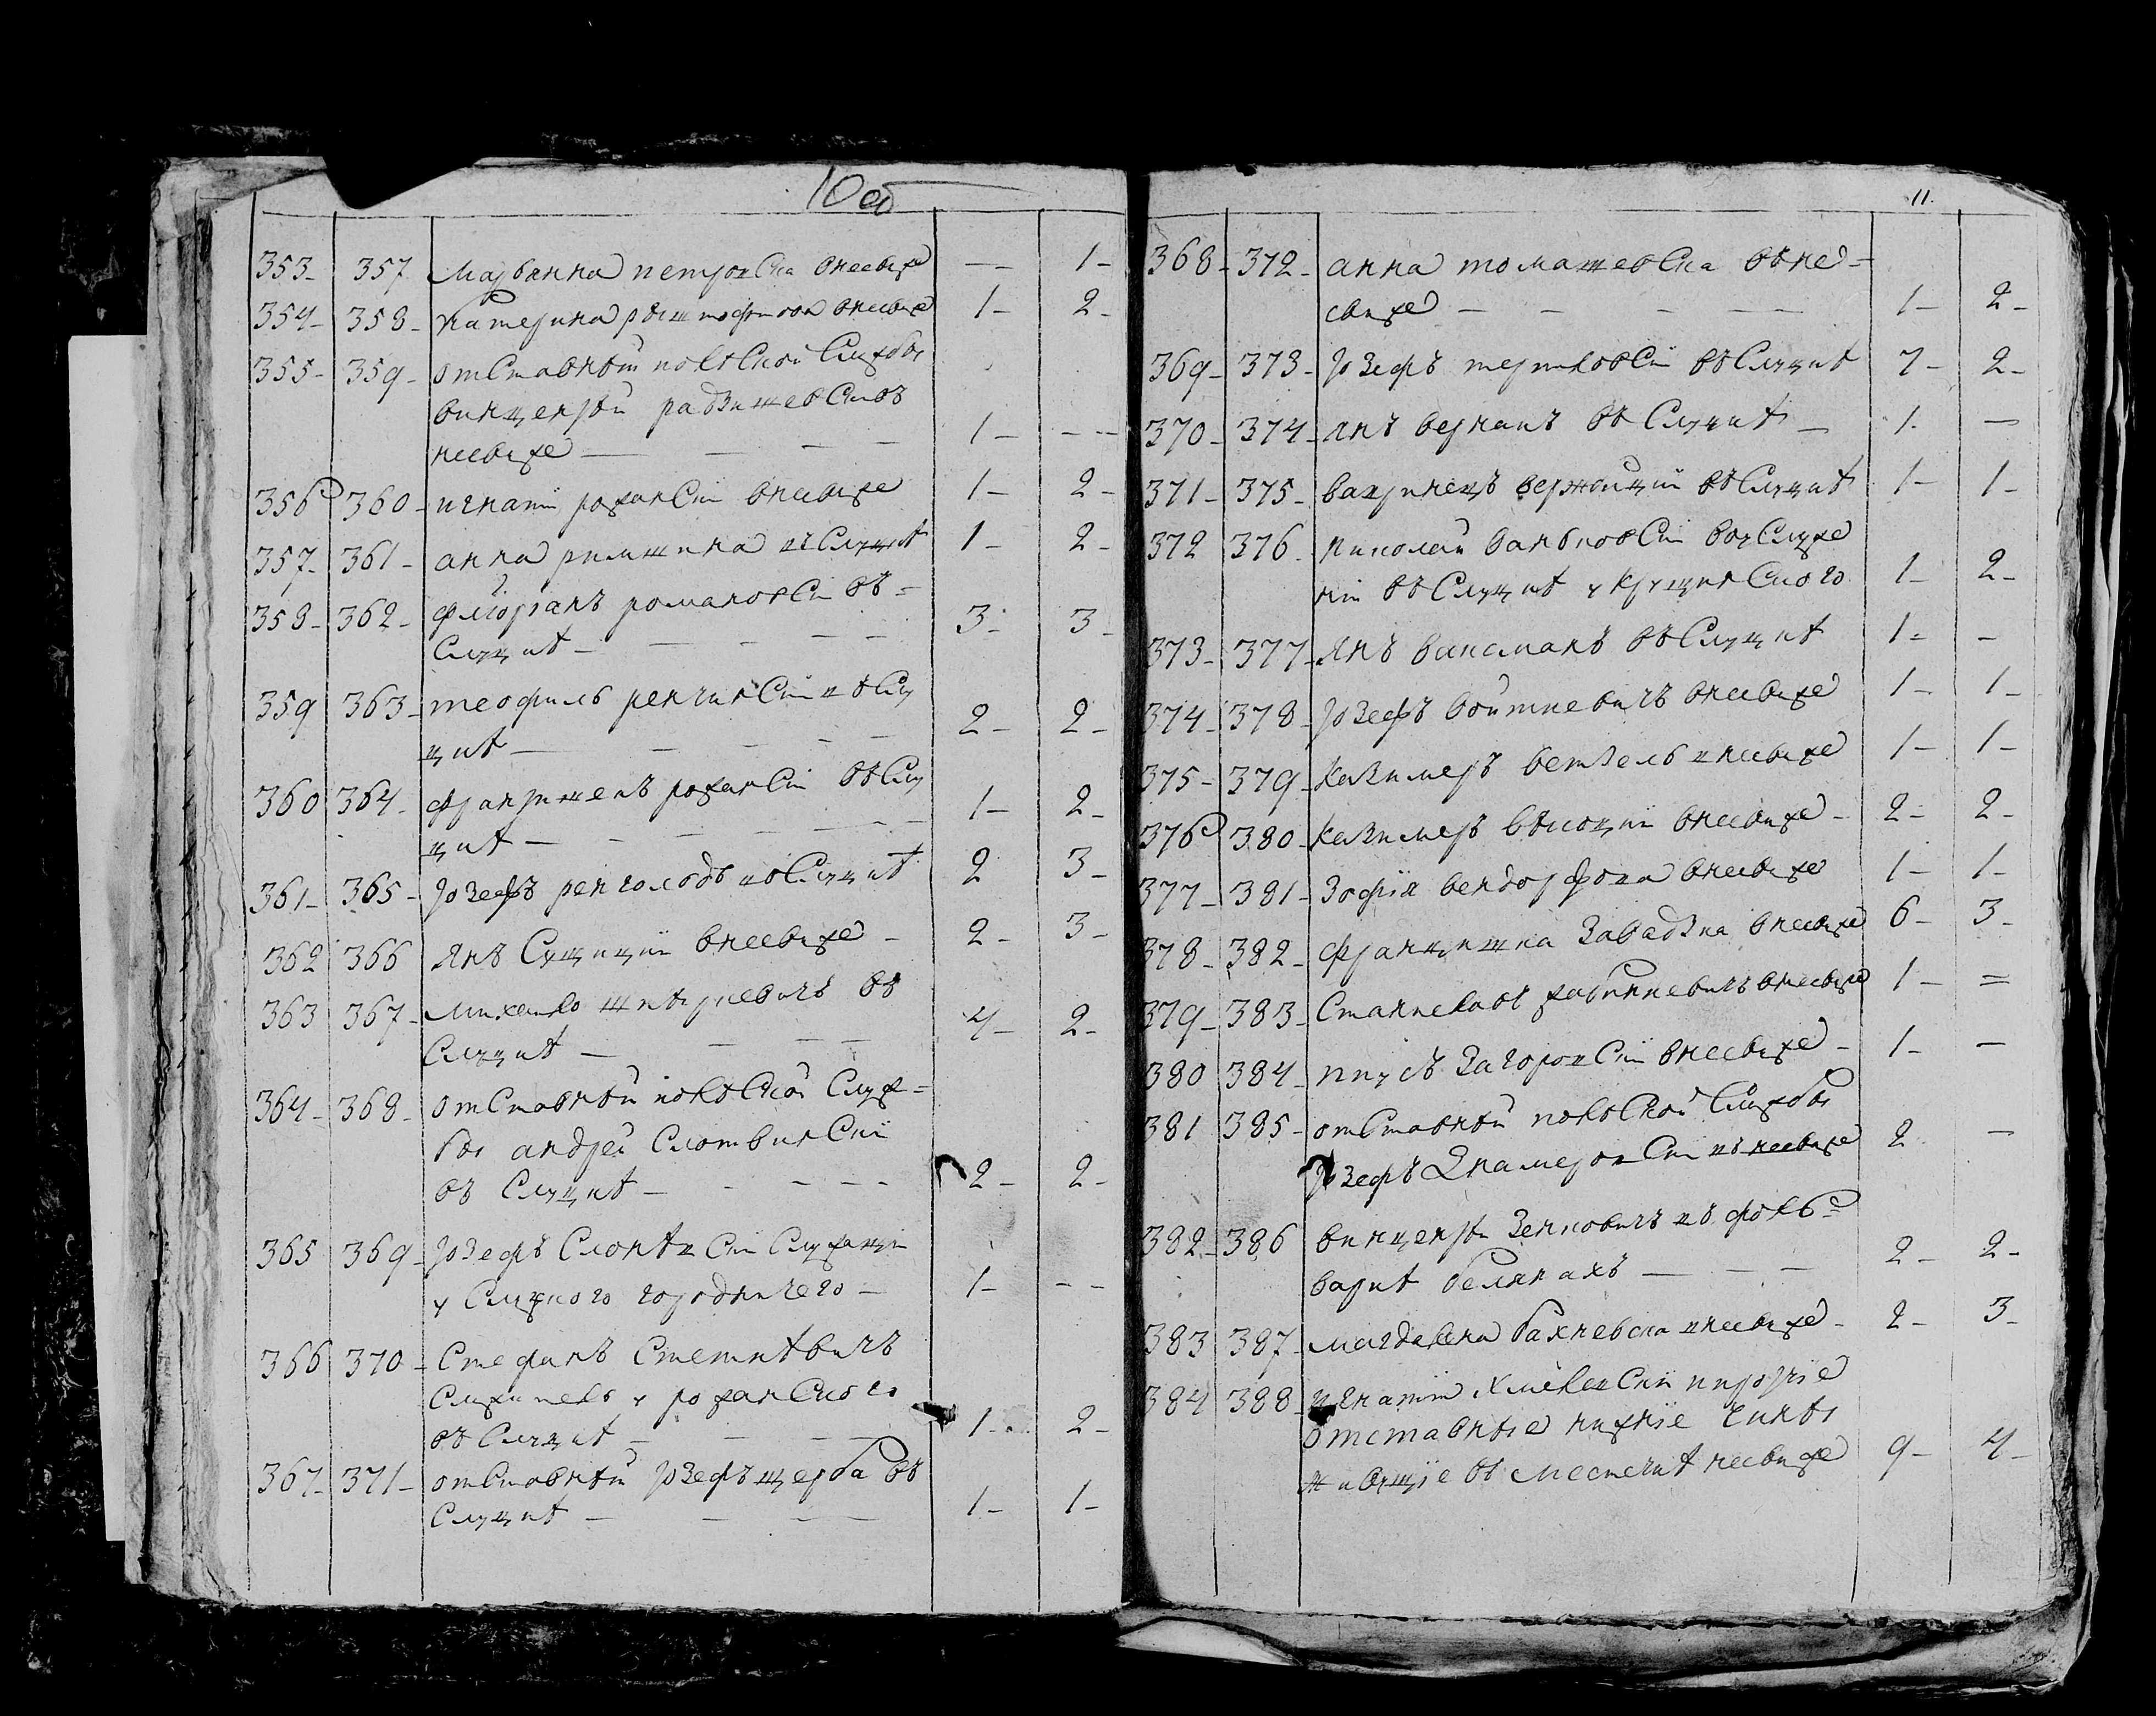 10 об
353- 357 Марьянна петровска внесвиже — 1-
354- 358- Катерина внесвиже 1- 2-
355- 359- отставный польской службы
винценты радзишевски въ
несвиже — — — 1- - -
356 360- игнатій рожанскій внесвиже 1- 2-
357- 361- анна римшина въ Слуцкѣ 1- 2-
358- 362- флоріанъ романовскі въ=
Слуцкѣ - — - — - 3- 3-
359 363- теофиль ренчинскій въ Слу
цкѣ — — - — - 2- 2-
360 364- францишекъ рожанскій въ Слу
цкѣ — - — - — - 1- 2-
361- 365- Юзефъ ренголодъ въ Слуцкѣ 2 3-
362 366 Янъ Сущицкій внесвиже - 2- 3-
363 367- Михайло въ
Слуцкѣ — — — — 4- 2-
364- 368- отставный польской Служ=
бы андрей Слотвинскій
въ Слуцкѣ — - - - - 2- 2-
365 369- Юзефъ Слонѣвскі Служащи
у Слуцкого городничего - 1- - -
366 370- Стефанъ Стеткѣвичъ
Служитель у рожанского
въ Слуцкѣ — — — 1- 2-
367- 371- отставный Юзефъ щерба въ
Слуцкѣ — — — 1- 1-
11.
368- 372- анна томашевска въ не-
свиже — - - — 1- 2-
369- 373- Юзефъ тертковскі въ Слуцкѣ 7- 2-
370- 374- Янъ вернанъ въ Слуцкѣ — 1. —
371- 375- вавринецъ вержбицкій въ Слуцкѣ 1- 1-
372 376- николай ванковскі воуслуже
ніи въ Слуцкѣ у Крущинского 1- 2-
373- 377- Янъ ваисманъ въ Слуцкѣ 1- -
374- 378- Юзефъ войткевичъ внесвиже 1- 1-
375- 379- Казимеръ ветзель внесвиже 1- 1-
376 380- Казимеръ высоцкій внесвиже - 2- 2-
377- 381- Зофія вендорфова внесвиже 1- 1-
378- 382- францишка Завадзка внесвиже 6- 3-
379- 383- Станиславъ внесвиже 1- =
380 384- Загоровскій внесвиже - 1- —
381 385- отставный польской Службы
Юзефъ Знамеровскі въ несвиже 2 —
382- 386 винценты Зенковичъ въ фоль=
варкѣ белянахъ — — — 2- 2-
383 387- магдалена бахневска внесвиже - 2- 3-
384 388- игнатій Хмѣлевскій и прочіе
отставные нижніе чины
живущіе въ местечкѣ несвиже 9- 4-